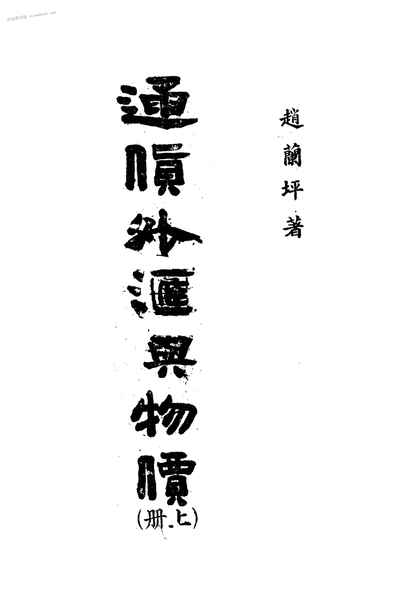 趙蘭坪著
通貨外滙與物價
(上册)